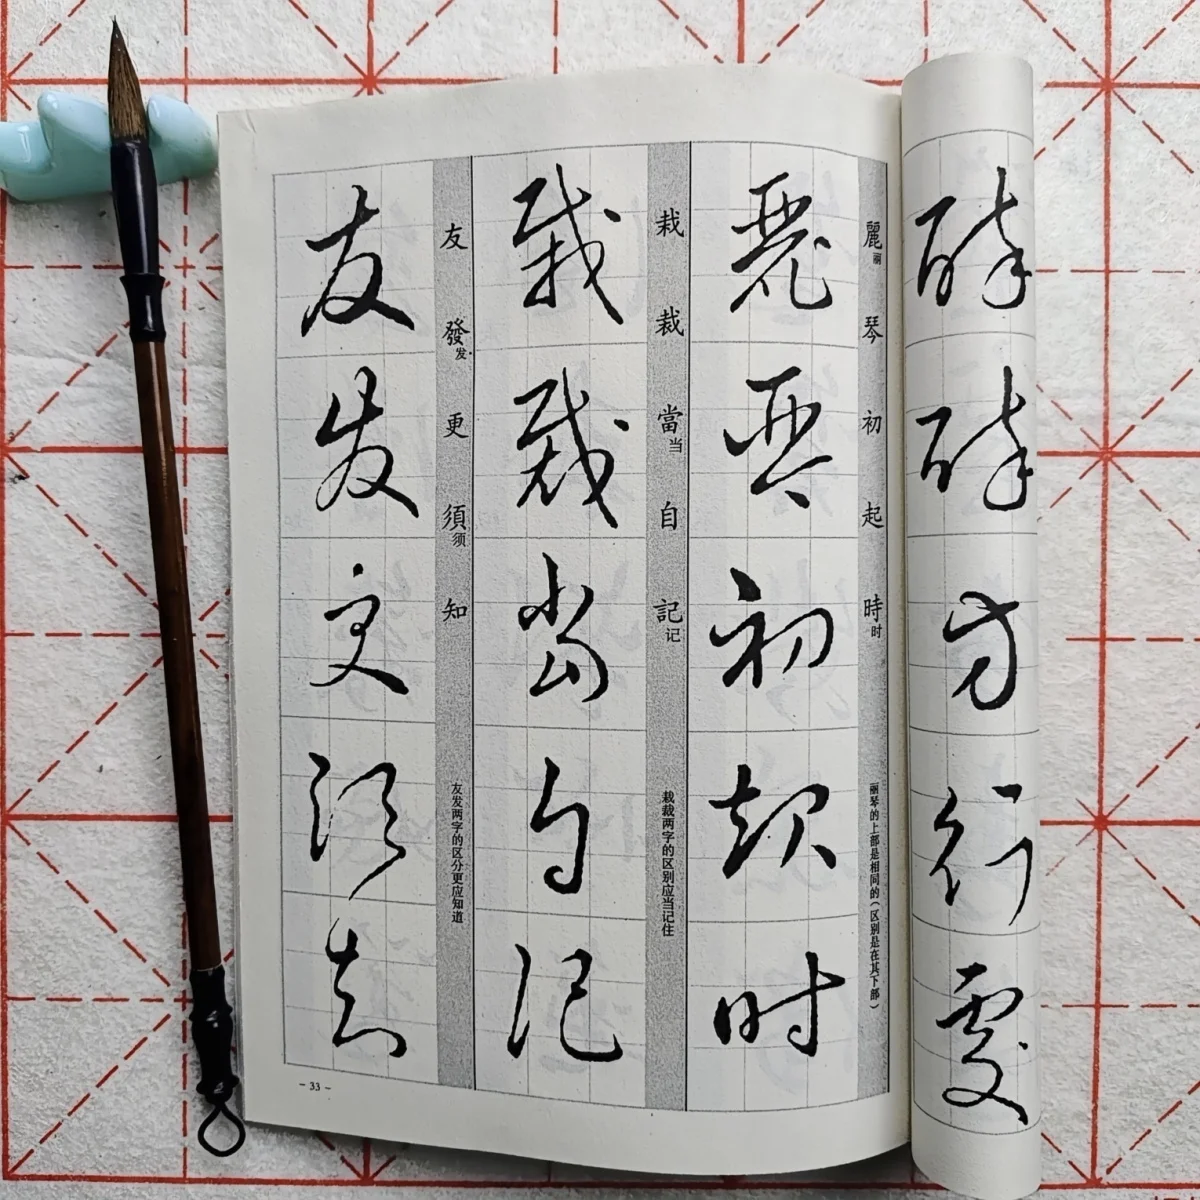 麗丽 琴 初 起 時时
丽琴的上部是相同的（区别是在其下部）
麗琴初起時
栽 裁 當当 自 記记
栽裁两字的区别应当记住
栽裁當自記
友 發发 更 須须 知
友发两字的区分更应知道
友發更須知
- 33 -